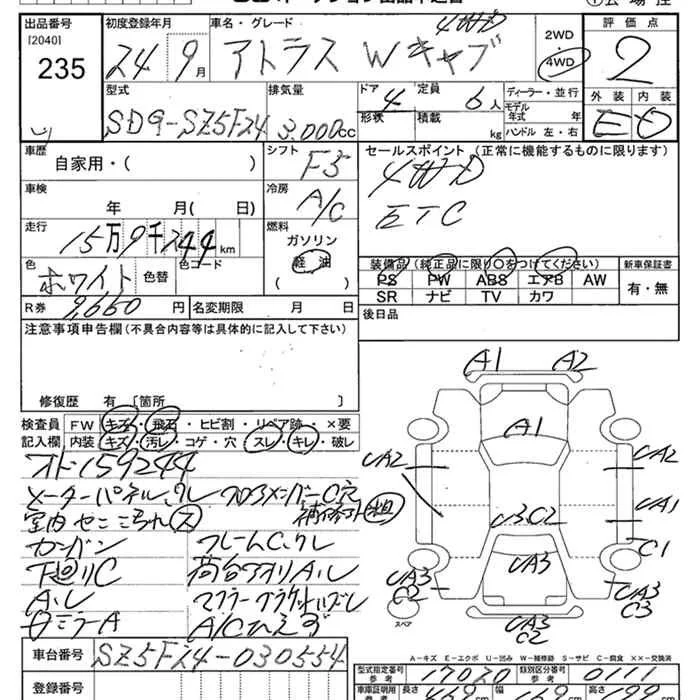 出品番号
[2040]
235
初度登録年月
24年9月
車名・グレード
4WD
アトラス Wキャブ
2WD
4WD
評価点
2
外装 内装
E D
型式
SD9-SZ5F24
排気量
3,000cc
ドア
4
形状
定員
6人
積載
kg
ディーラー・並行
モデル年式 年
ハンドル 左・右
車歴
自家用・( )
シフト
F5
セールスポイント (正常に機能するものに限ります)
4WD
ETC
車検
年 月( 日)
冷房
A/C
走行
15万9千244km
燃料
ガソリン
軽油
( )
色
ホワイト
色替
色コード
装備品(純正品に限り○をつけてください)
PS PW ABS エアB AW
SR ナビ TV カワ
新車保証書
有・無
R券
9,660円
名変期限 月 日
後日品
注意事項申告欄(不具合内容等は具体的に記入して下さい)
修復歴 有 [箇所 ]
検査員記入欄
FW キズ・飛石・ヒビ割・リペア跡・×要
内装 キズ・汚レ・コゲ・穴 スレ・キレ・破レ
オドー159244
メーターパネルワレ クロスメンバーC穴
補修
室内
カンバン フレームC、ワレ
下廻りC 荷台アオリA、レ
A、レ
ミラーA A/Cひえず
A1 A2
A1
UA2 UA2
UA1
U3C2
C1
UA3
UA3
C2
UA3
C3
スペア
UA3
C2
A-キズ E-エクボ U-凹み W-補修跡 S-サビ C-腐食 ××-交換済
車台番号
SZ5F24-030554
登録番号
型式指定番号
参考
17020
類別区分番号
参考
0111
車庫証明用
参考
長さ
幅
高さ